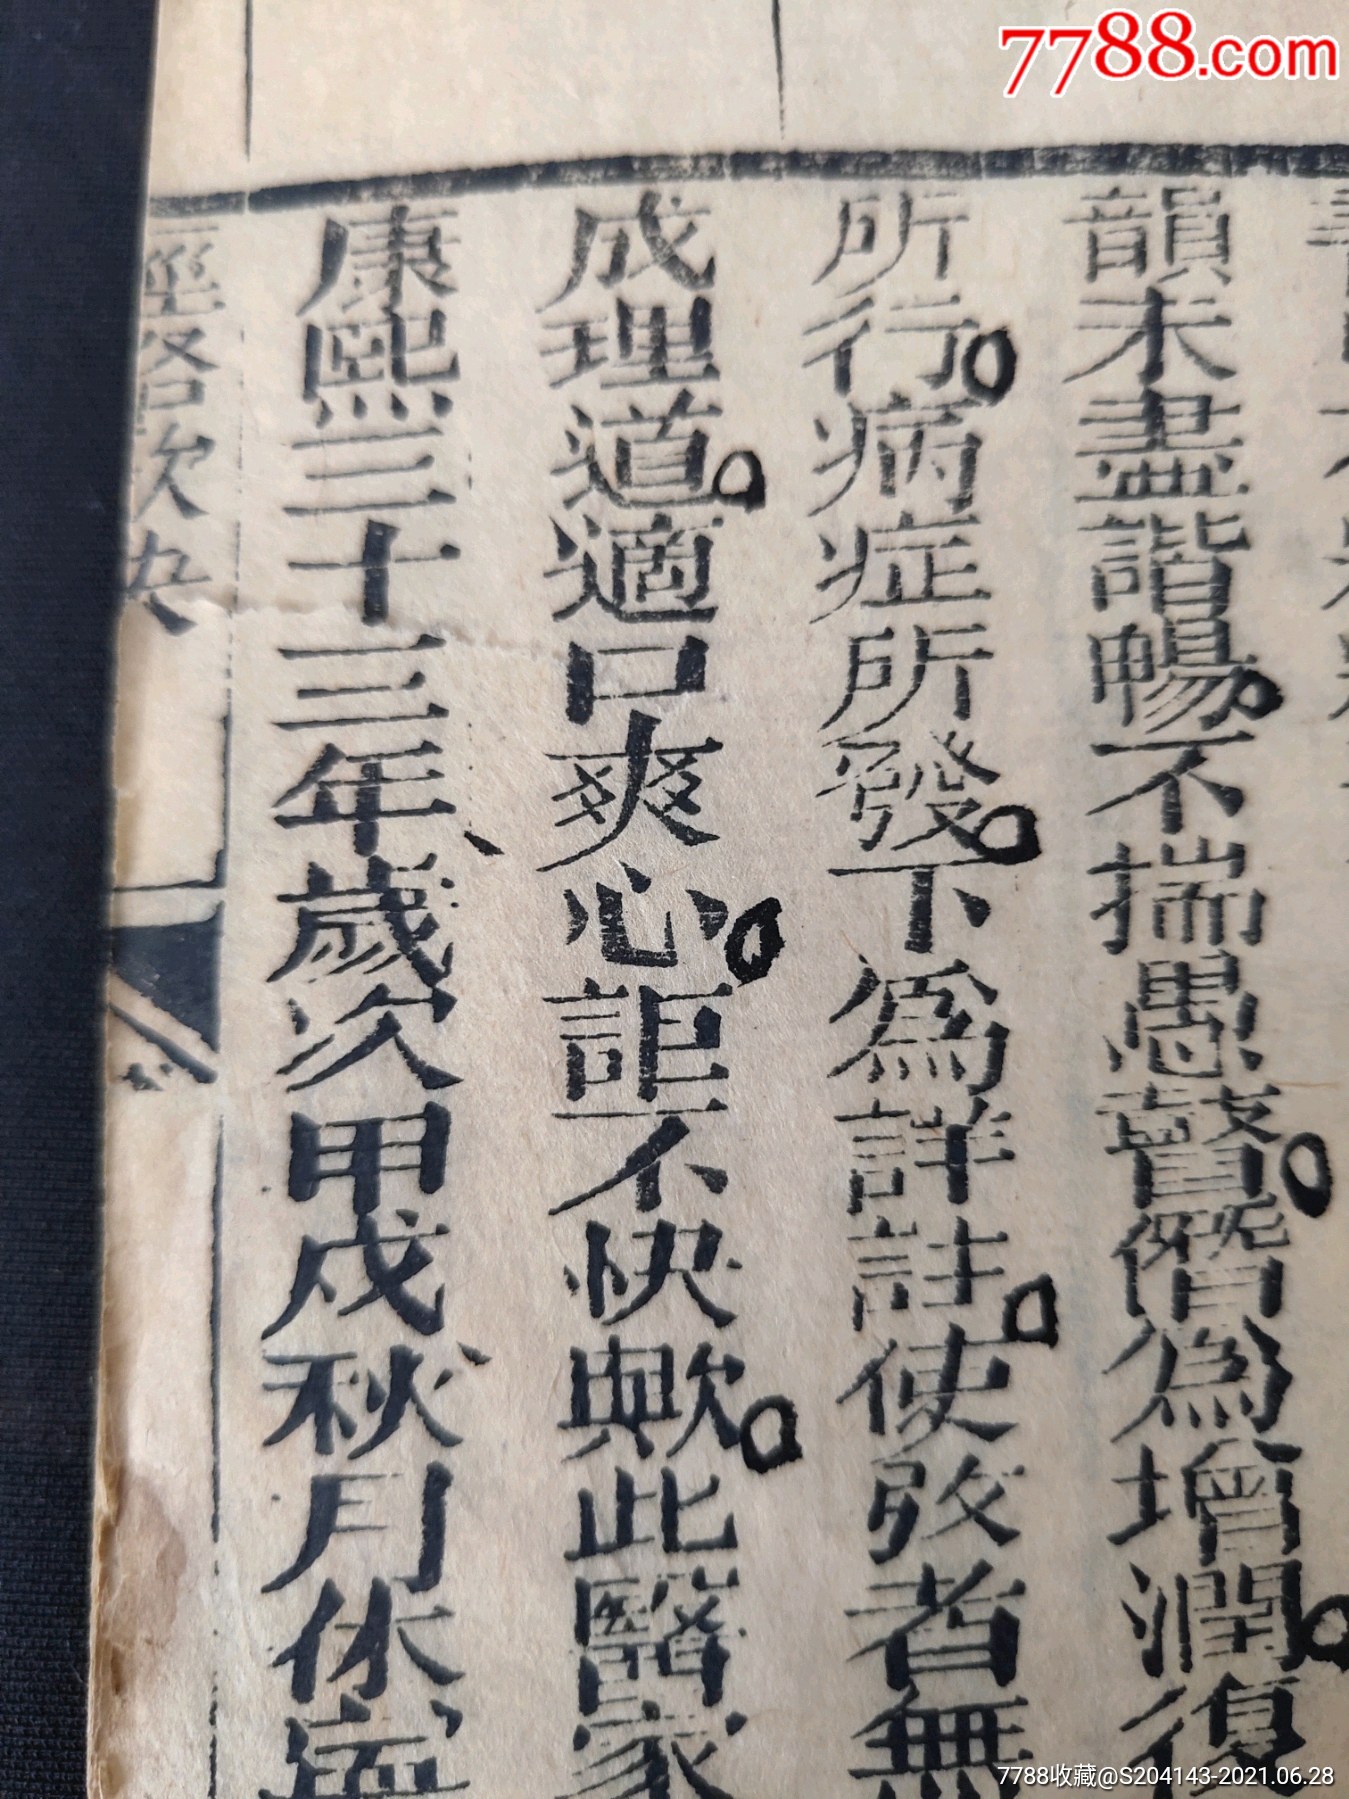 7788.com
韻未盡諧暢不揣愚聾僭為增潤復
所行病症所發下為詳註使攷者無
成理道適口爽心詎不快歟此醫家
康熙三十三年歲次甲戌秋月休寧
經絡歌
7788收藏@S204143-2021.06.28